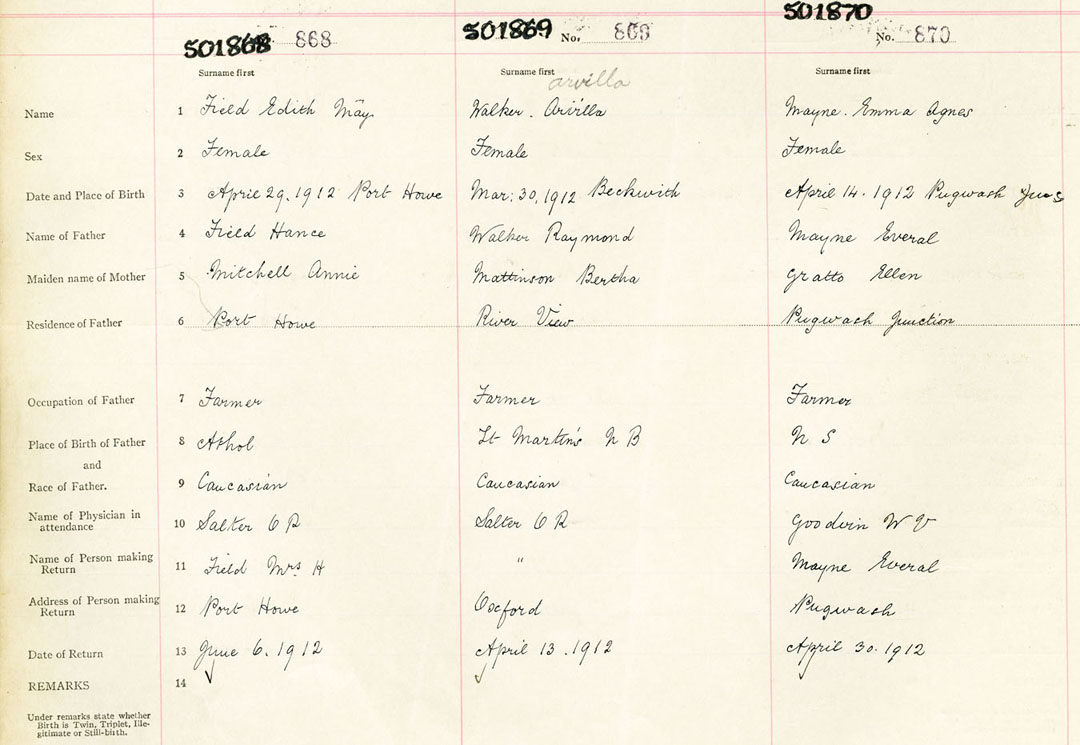 501868 868 501869 No. 869 501870 No. 870
Surname first Surname first Surname first
arvilla
Name 1 Field Edith May. Walker. Arvilla Mayne. Emma Agnes
Sex 2 Female Female Female
Date and Place of Birth 3 April 29, 1912 Port Howe Mar: 30, 1912 Beckwith April 14. 1912 Pugwash Junc
Name of Father 4 Field Hance Walker Raymond Mayne Everal
Maiden name of Mother 5 Mitchell Annie Mattinson Bertha Gratto Ellen
Residence of Father 6 Port Howe River View Pugwash Junction
Occupation of Father 7 Farmer Farmer Farmer
Place of Birth of Father 8 Athol St Martin's N B N S
and
Race of Father. 9 Caucasian Caucasian Caucasian
Name of Physician in
attendance 10 Salter C R Salter C R Goodwin W V
Name of Person making
Return 11 Field Mrs H " Mayne Everal
Address of Person making
Return 12 Port Howe Oxford Pugwash
Date of Return 13 June 6. 1912 April 13. 1912 April 30. 1912
REMARKS 14
Under remarks state whether
Birth is Twin, Triplet, Ille-
gitimate or Still-birth.